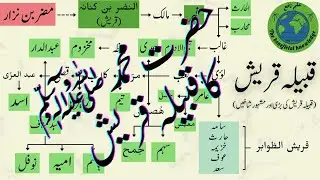 مضر بن نزار
النضر بن کنانہ
(قریش)
مالک
الحارث
محارب
غالب
لوی
مخزوم
عبدالدار
عبد العزی
اسد
تیم
سہم
جمح
امیہ
نوفل
حضرت محمد صلی اللہ علیہ وآلہ وسلم
کا قبیلہ قریش
قبیلہ قریش
(قبیلہ قریش کی بڑی اور مشہور شاخیں)
قریش الظواہر
سامہ
حارث
خزیمہ
عوف
سعد